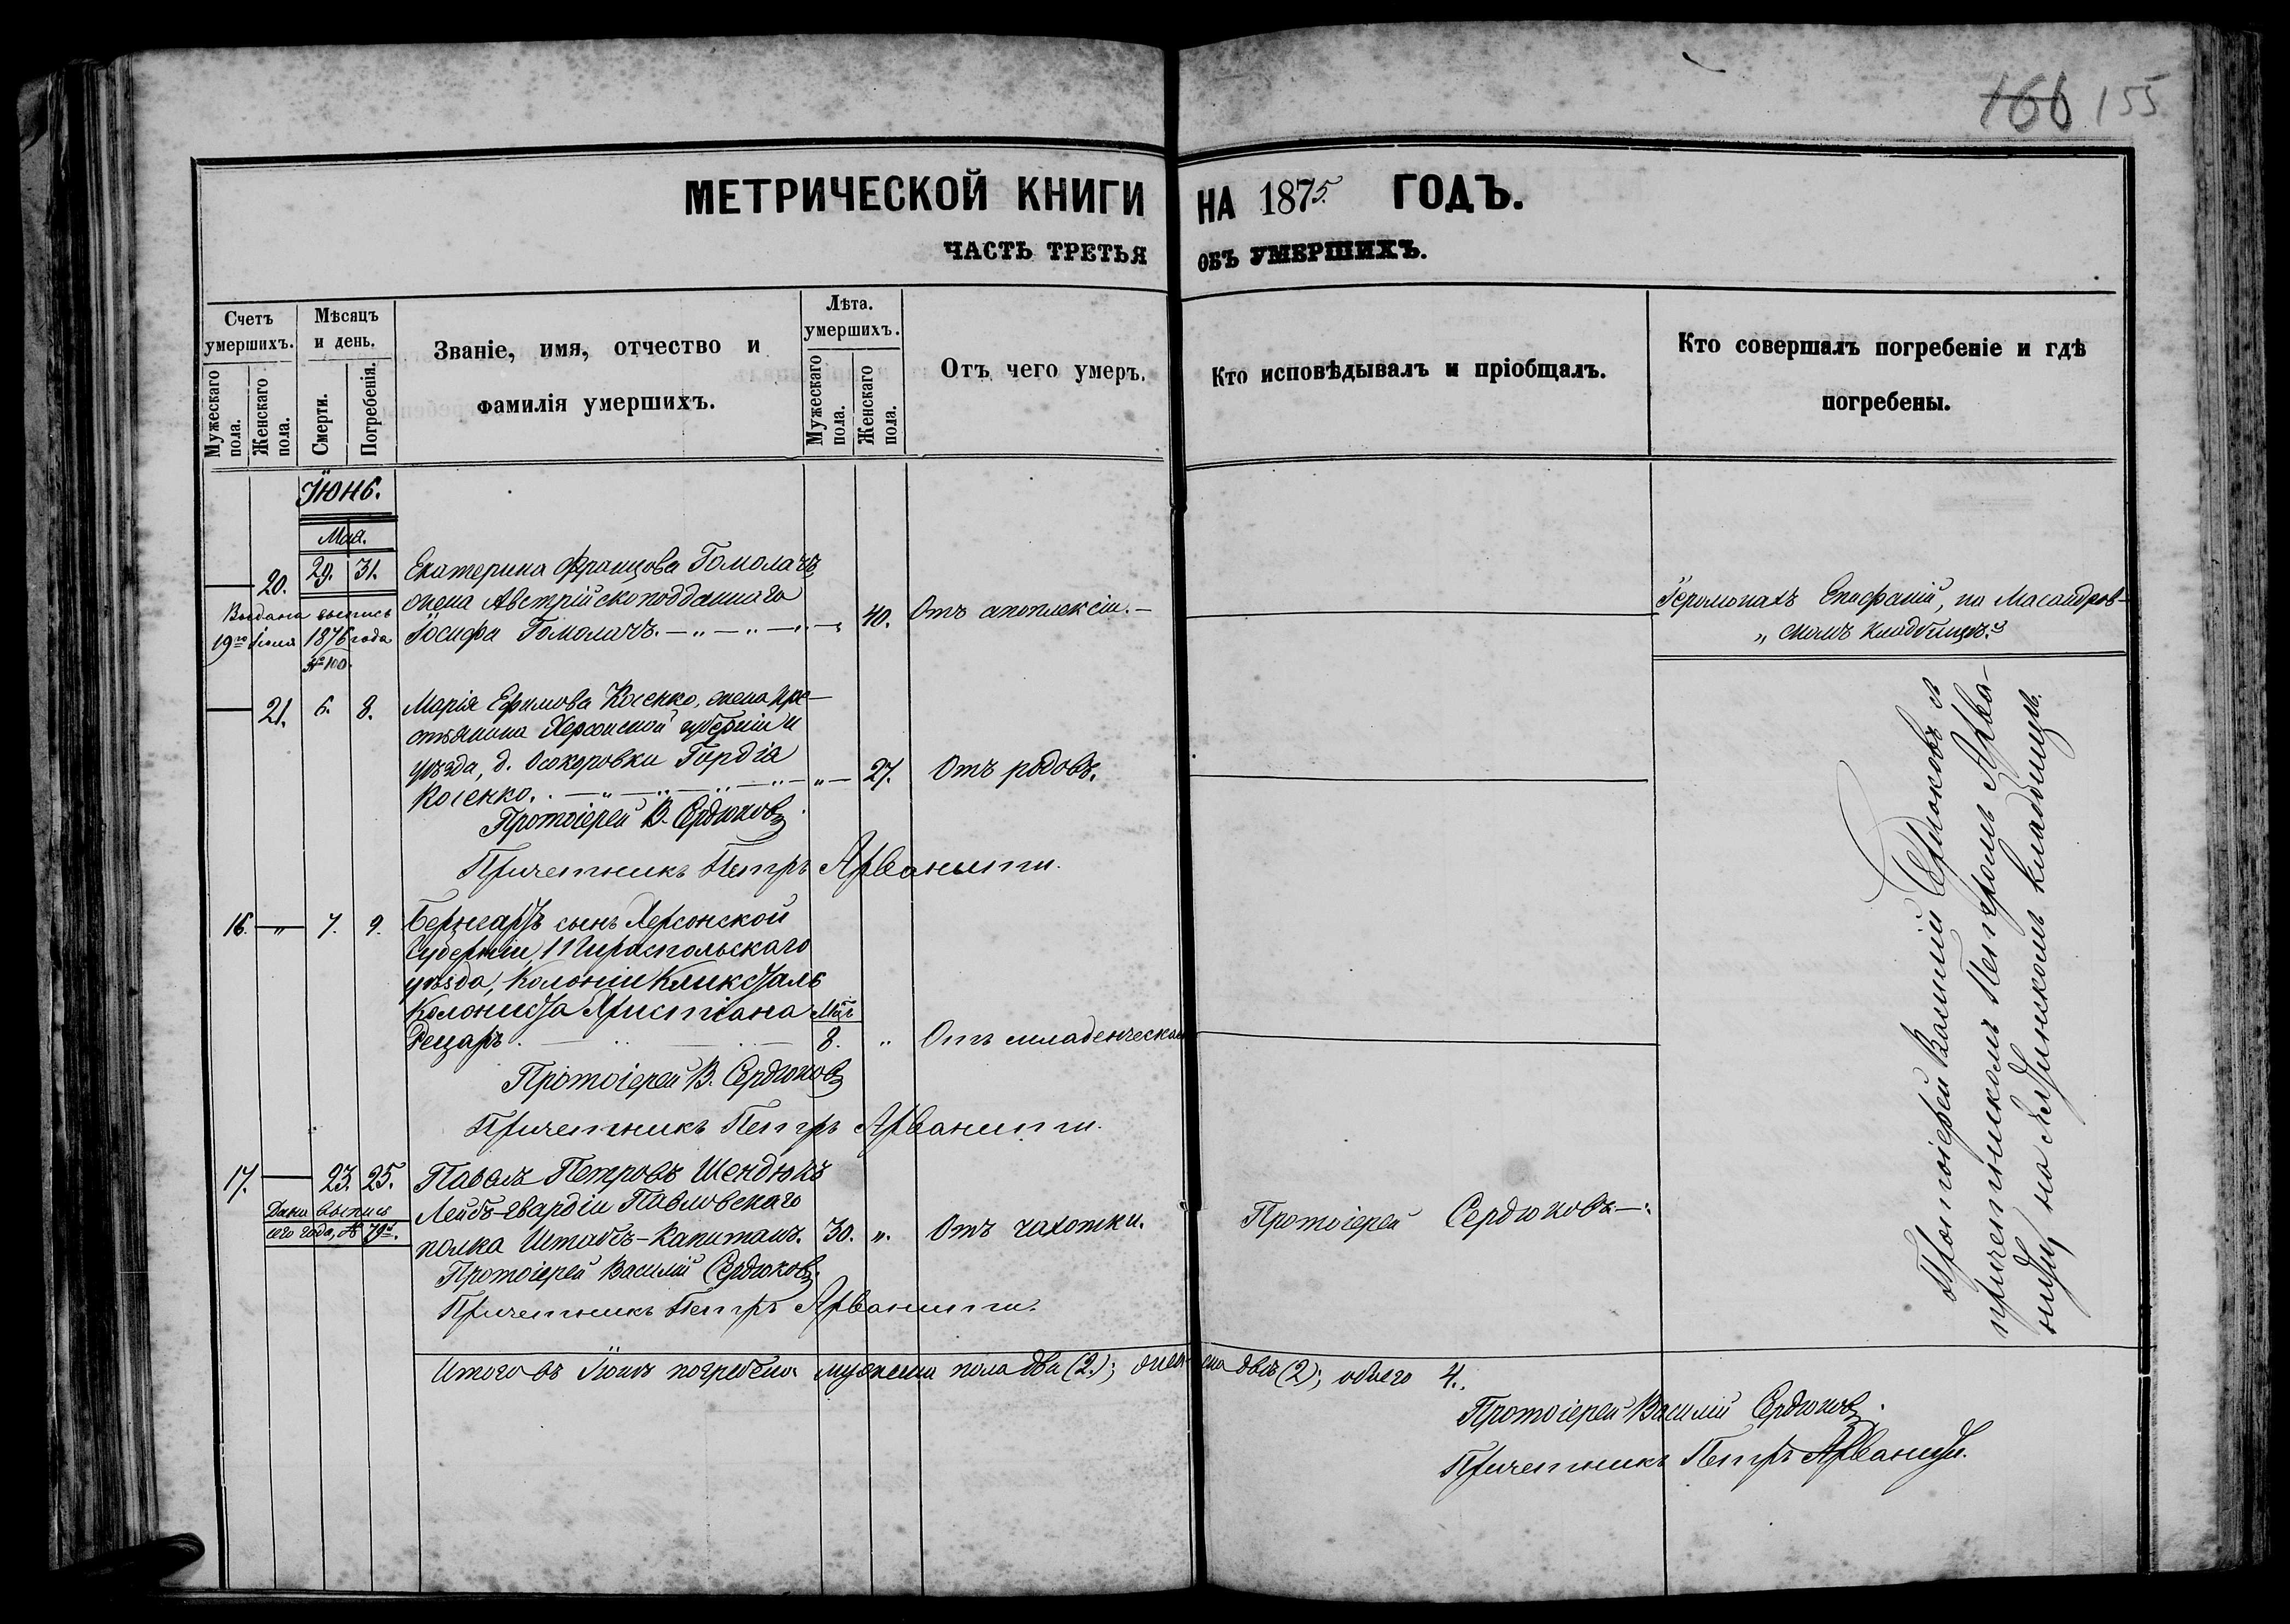 166 155
МЕТРИЧЕСКОЙ КНИГИ НА 1875 ГОДЪ.
ЧАСТЬ ТРЕТЬЯ ОБЪ УМЕРШИХЪ.
Счетъ умершихъ.
Мужескаго пола.
Женскаго пола.
Мѣсяцъ и день.
Смерти.
Погребенія.
Званіе, имя, отчество и
фамилія умершихъ.
Лѣта.
умершихъ.
Мужескаго пола.
Женскаго пола.
Отъ чего умеръ.
Кто исповѣдывалъ и пріобщалъ.
Кто совершалъ погребеніе и гдѣ
погребены.
Іюнь.
Мая.
20. 29. 31. Екатерина Францова Гомолачъ,
жена Австрійскоподданнаго
Іосифа Гомолачъ. 40. Отъ апоплексіи.
Выдана выпись
19го Іюля 1876 года
№ 100.
Іеромонахъ Епифаній, на Масандров-
„ скомъ кладбищѣ.
21. 6. 8. Марія Ефимова Косенко, жена кре-
стьянина Херсонской губерніи и
уѣзда, д. Осокоровки Гордія
Косенко. 27. Отъ родовъ.
Протоіерей В. Сердюковъ
Причетникъ Петръ Арванити.
16. „ 7. 9. Бернгардъ сынъ Херсонской
Губерніи, Тираспольскаго
уѣзда, Колоніи
Колониста Христіана Мѣс.
8. „ Отъ младенческой
Протоіерей В. Сердюковъ
Причетникъ Петръ Арванити.
17. 23. 25. Павелъ Петровъ Шендюкъ
Лейбъ-гвардіи Павловскаго
полка Штабсъ-Капитанъ. 30. „. Отъ чахотки. Протоіерей Сердюковъ
Дана выпись
сего года, № 79й.
Протоіерей Василій Сердюковъ.
Причетникъ Петръ Арванити.
Протоіерей Василій Сердюковъ съ
причетникомъ Петромъ Арва-
нити, на кладбищѣ.
Итого въ Іюнѣ погребено мужеска пола два (2.); женска двѣ (2); обоего 4.
Протоіерей Василій Сердюковъ.
Причетникъ Петръ Арванити.